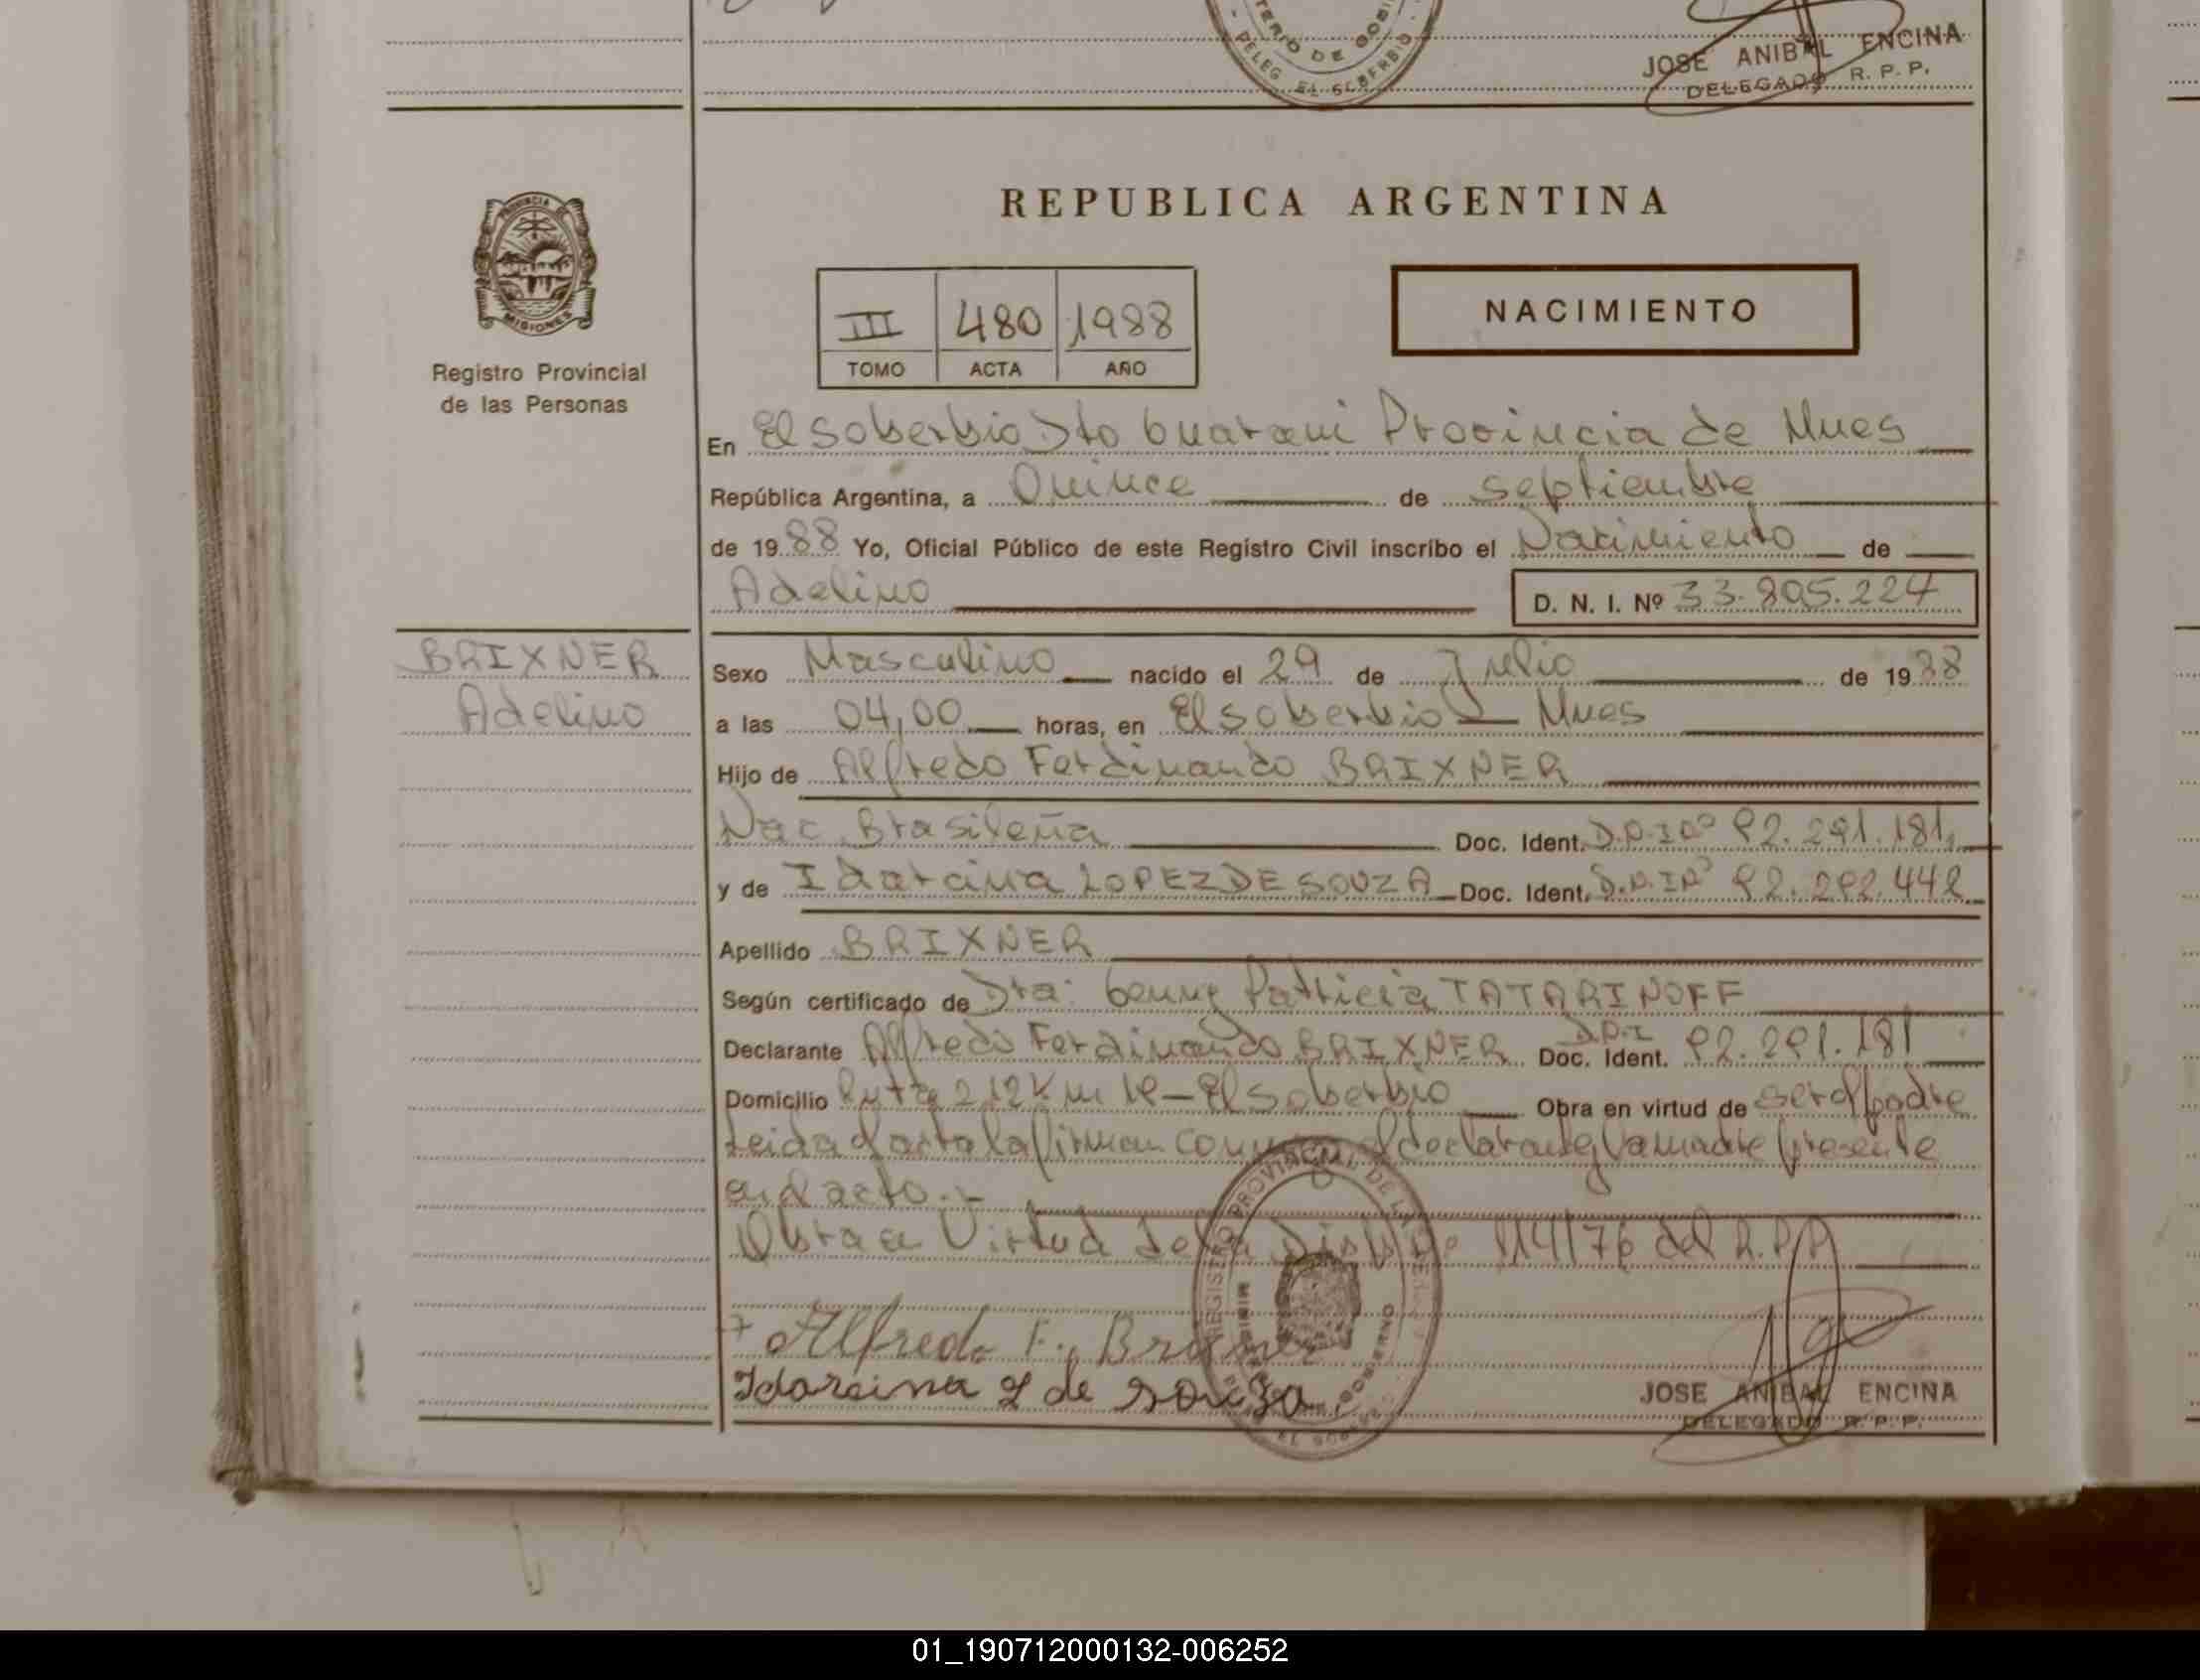 MINISTERIO DE GOBI
DELEG EL SOBERBIO
JOSE ANIBAL ENCINA
DELEGADO R. P. P.
PROVINCIA DE
MISIONES
Registro Provincial
de las Personas
REPUBLICA ARGENTINA
III 480 1988
TOMO ACTA AÑO
NACIMIENTO
En El Soberbio Dto Guarani Provincia de Mnes
República Argentina, a Quince de septiembre
de 1988 Yo, Oficial Público de este Registro Civil inscribo el Nacimiento de
Adelino D. N. I. Nº 33.805.224
BRIXNER
Adelino
Sexo Masculino nacido el 29 de Julio de 1988
a las 04,00 horas, en El Soberbio - Mnes
Hijo de Alfredo Ferdinando BRIXNER
Nac. Brasileña Doc. Ident. D.N.I Nº 92.291.181
y de Idorcina LOPEZ DE SOUZA Doc. Ident. D.N.I Nº 92.292.442
Apellido BRIXNER
Según certificado de Dra. Genny Patricia TATARINOFF
Declarante Alfredo Ferdinando BRIXNER Doc. Ident. D.N.I 92.291.181
Domicilio Ruta 212 Km 18 - El Soberbio Obra en virtud de ser el padre
Leida el acta la firman conmigo el declarante y la madre presente
en el acto.-
Obra en Virtud de la Disp. Nº 114/76 del R.P.P
Alfredo F. Brixner
Idorcina L de souza
REGISTRO PROVINCIAL DE LAS PERSONAS
JOSE ANIBAL ENCINA
DELEGADO R. P. P.
01_190712000132-006252